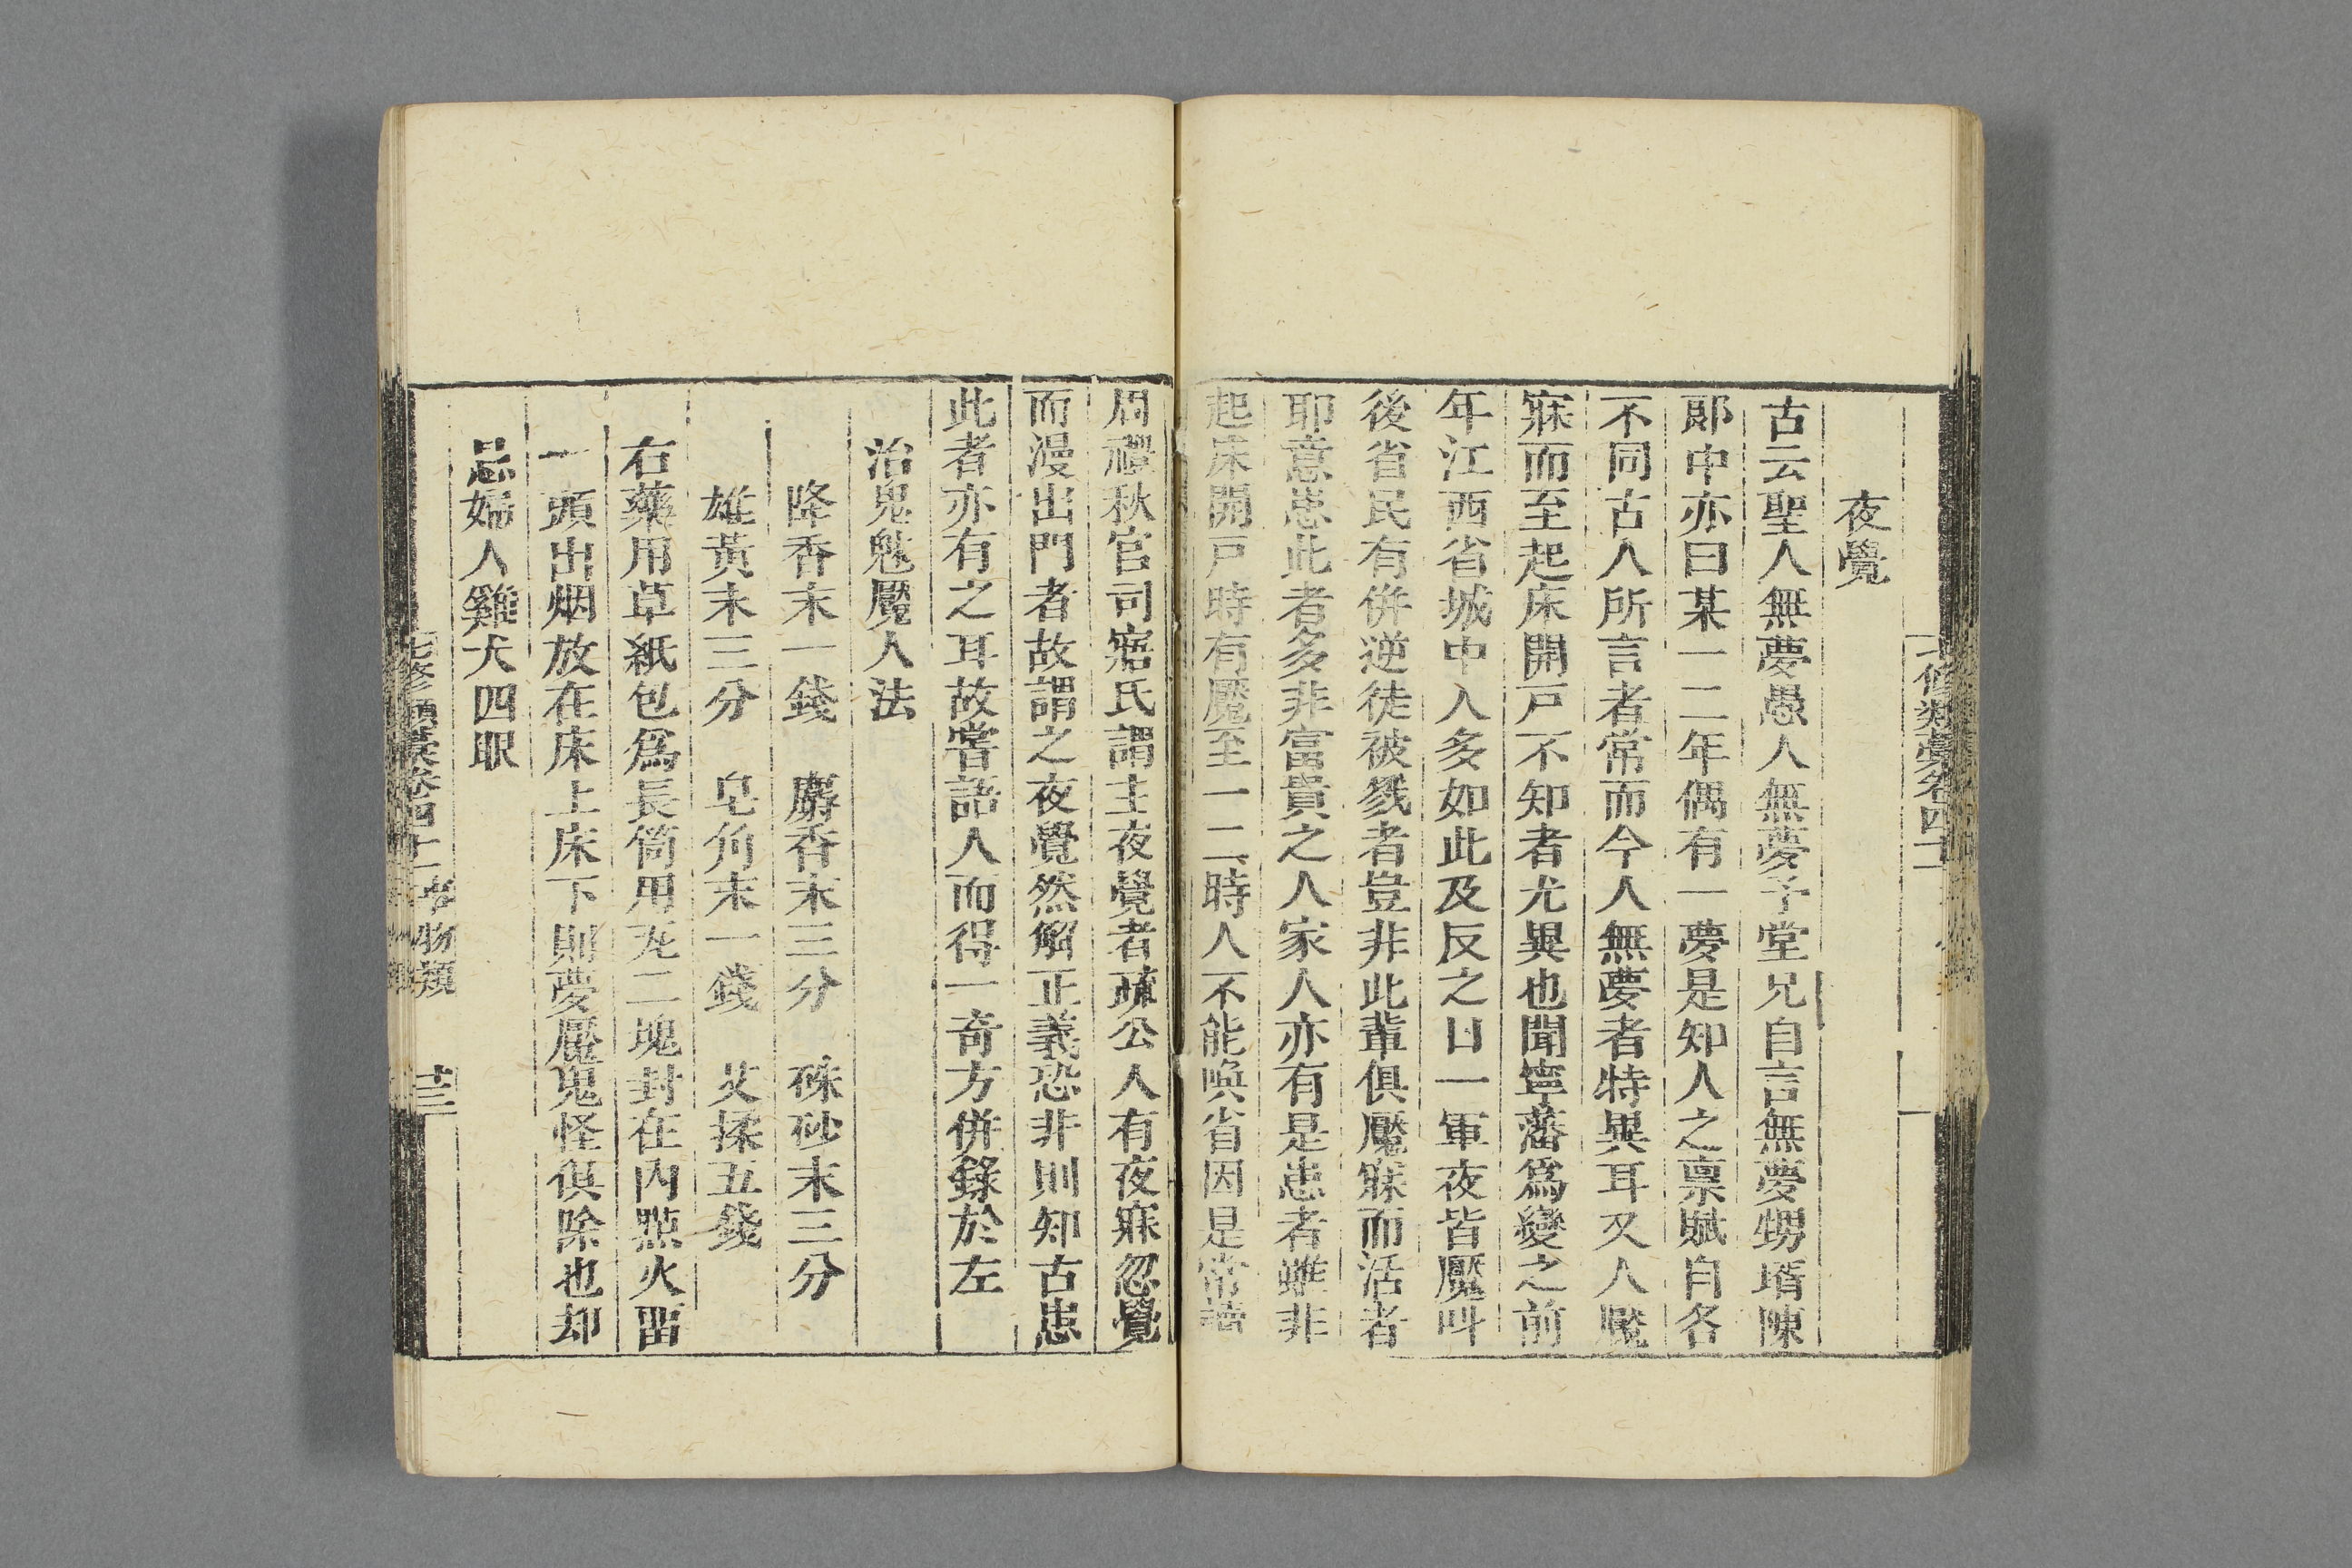 夜覺
古云聖人無夢愚人無夢予堂兄自言無夢甥壻陳
郞中亦曰某一二年偶有一夢是知人之稟賦自各
不同古人所言者常而今人無夢者特異耳又人魘
寐而至起床開戸不知者尤異也聞寧藩爲變之前
年江西省城中人多如此及反之日一軍夜皆魘叫
後省民有併逆徒被戮者豈非此輩俱魘寐而活者
耶意患此者多非富貴之人家人亦有是患者雖非
起床開戸時有魘至一二時人不能喚省因是常讀
周禮秋官司寤氏謂主夜覺者疏公人有夜寐忽覺
而漫出門者故謂之夜覺然觧正義恐非則知古患
此者亦有之耳故嘗語人而得一奇方併錄於左
治鬼魅魘人法
降香末一錢 麝香末三分 硃砂末三分
雄黃末三分 皂角末一錢 艾揉五錢
右藥用草紙包爲長筒用瓦二塊封在內㸃火畱
一頭出烟放在床上床下則夢魘鬼怪俱除也却
忌婦人雞犬四眼
七修類藁卷四十二 事物類 十三